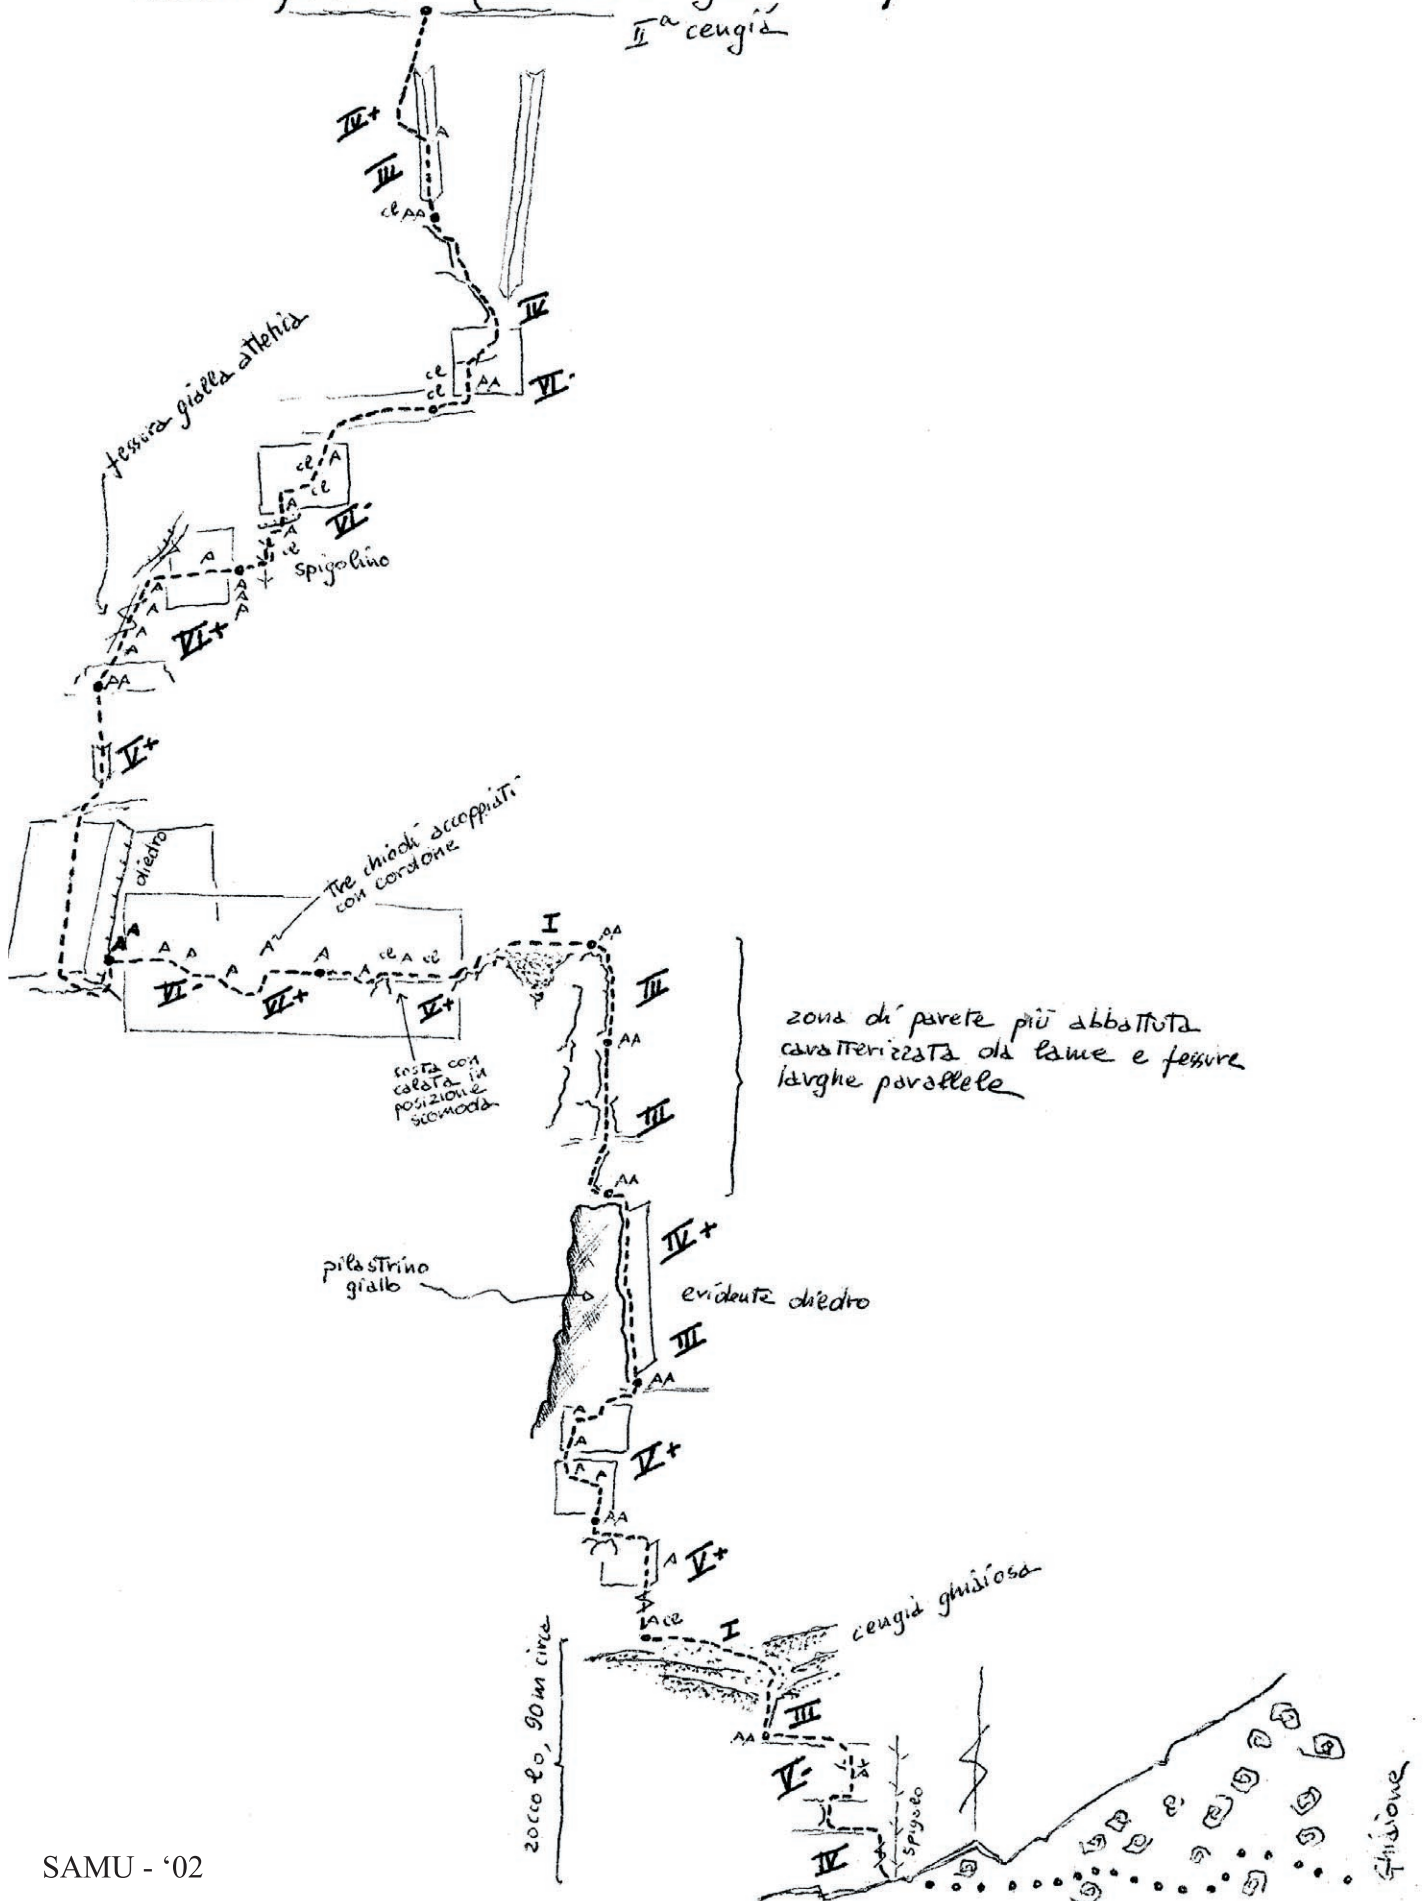 IIª cengia
IV+
A
III
cl AA
IV
cl
cl
AA
VI-
fessura gialla atletica
cl A
cl
A
A
cl
VI-
spigolino
A
A
A
A
A
A
A
A
A
VI+
AA
V+
diedro
Tre chiodi accoppiati
con cordone
AA
A A
A
A
A
A cl A cl
VI-
VI+
V+
I
AA
III
sosta con
calata in
posizione
scomoda
AA
III
zona di parete più abbattuta
caratterizzata da lame e fessure
larghe parallele
AA
IV+
pilastrino
giallo
evidente diedro
III
AA
A
A
IV+
A A
AA
A V+
A cl
I
cengia ghiaiosa
zoccolo, 90m circa
III
AA
V-
A
IV
spigolo
Ghiaione
SAMU - ‘02